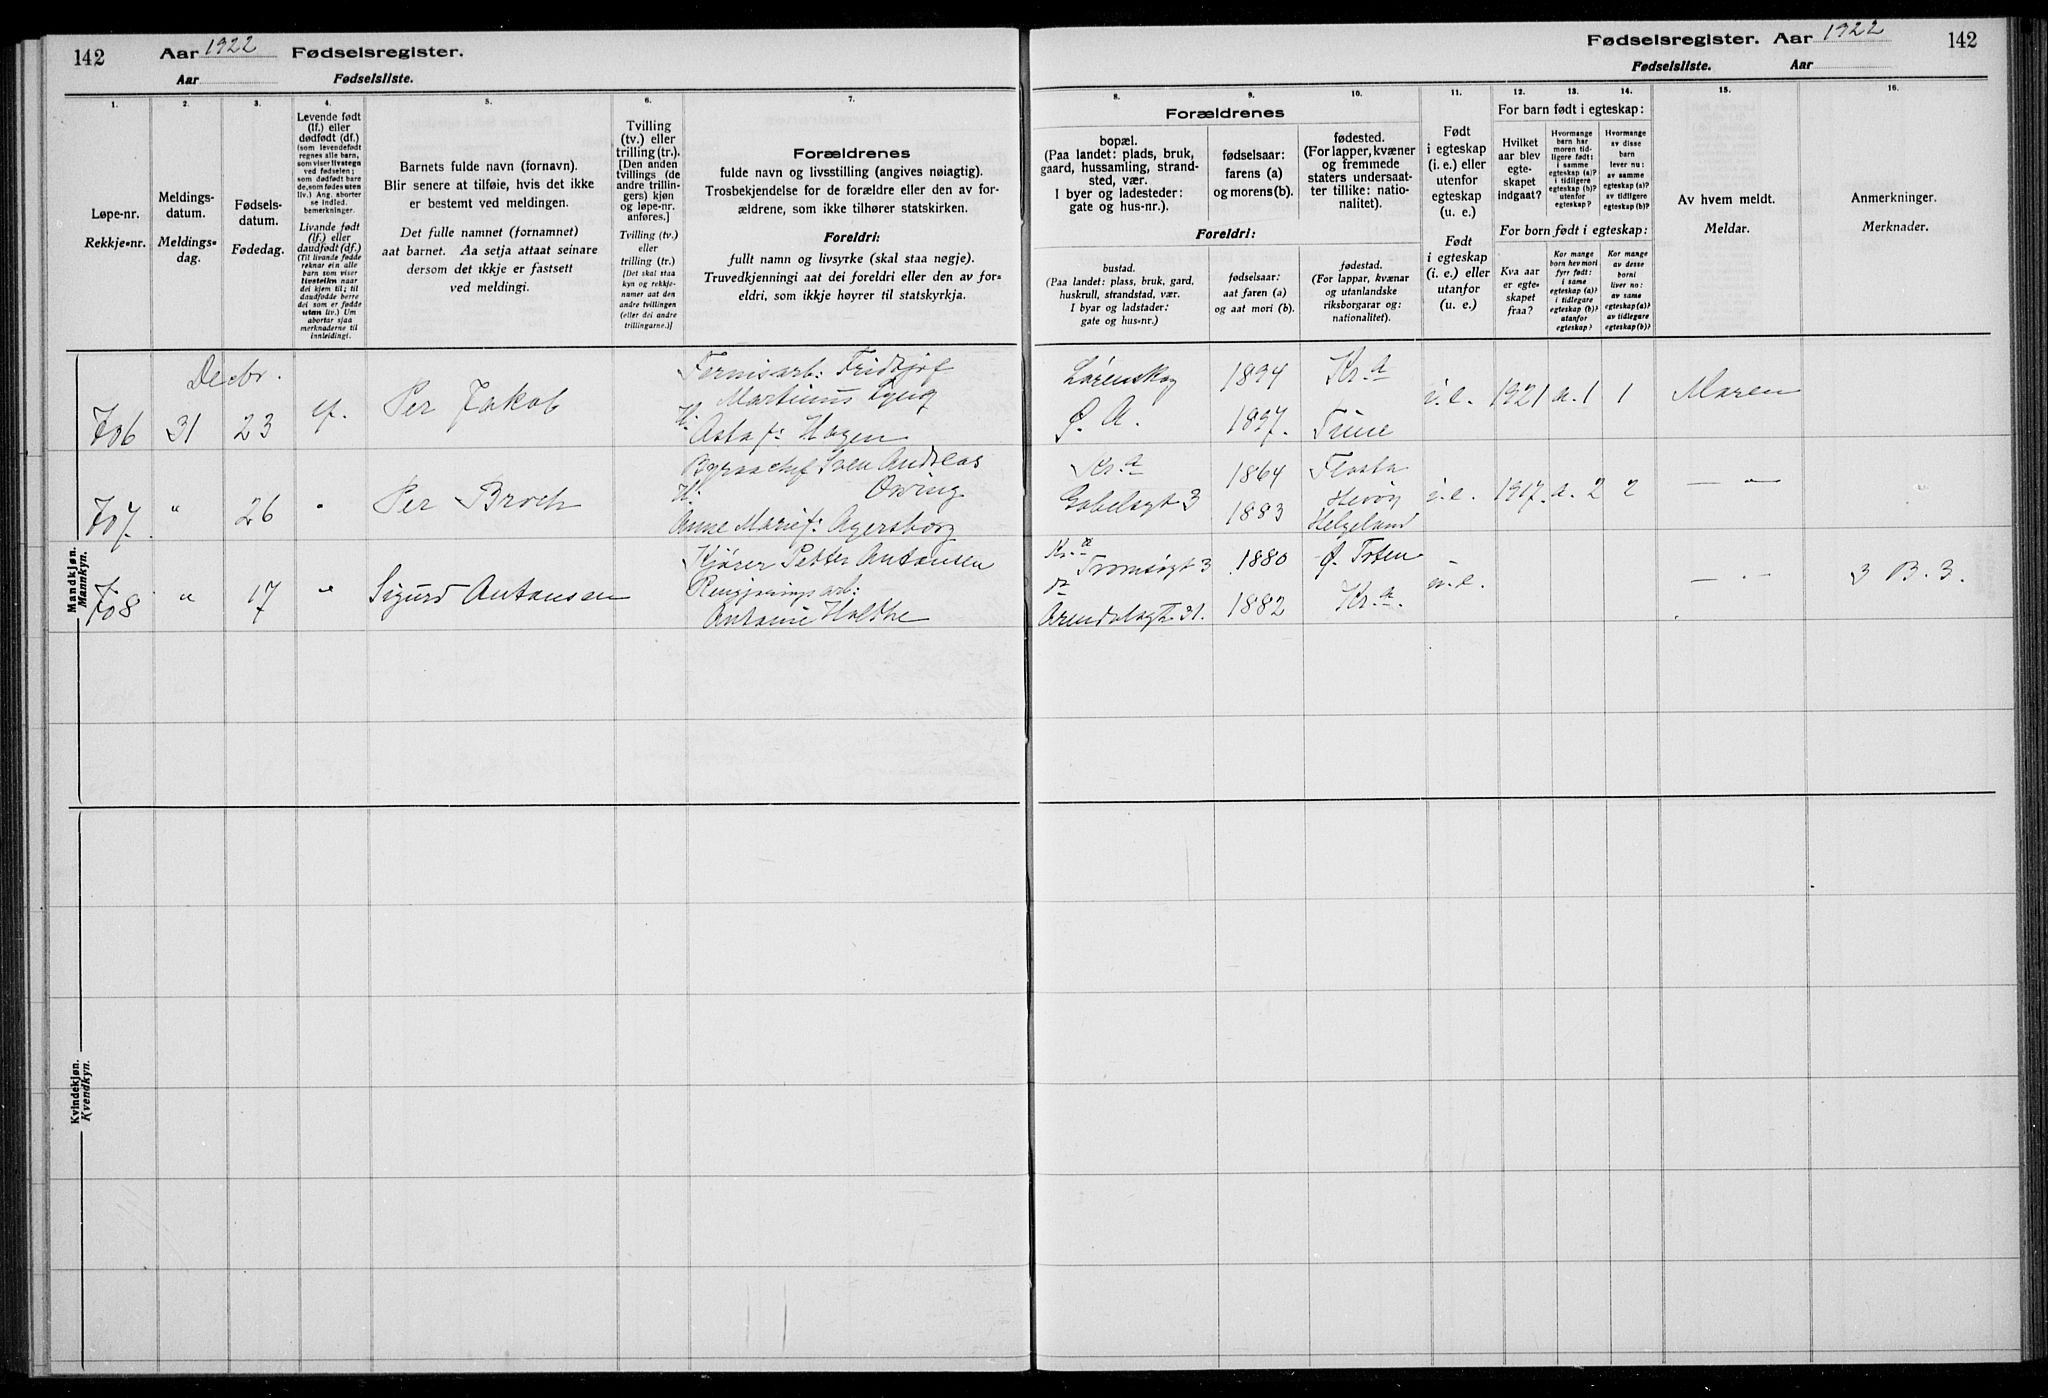 142 Aar 1922 Fødselsregister.
Aar Fødselsliste.
1. 2. 3. 4. 5. 6. 7.
Løpe-nr.
Rekkje-nr.
Meldings-
datum.
Meldings-
dag.
Fødsels-
datum.
Fødedag.
Levende født
(lf.) eller
dødfødt (df.)
(som levendefødt
regnes alle barn,
som viser livstegn
ved fødselen;
som dødfødt bare
de, som fødes uten
liv.) Ang. aborter
se indled.
bemerkninger.
Livande født
(lf.) eller
daudfødt (df.)
(Til livande fødde
reknar ein alle
barn som viser
livsteikn naar
dei kjem til; til
daudfødde berre
dei som er fødde
utan liv.) Um
abortar sjaa
merknaderne til
innleidingi.
Barnets fulde navn (fornavn).
Blir senere at tilføie, hvis det ikke
er bestemt ved meldingen.
Det fulle namnet (fornamnet)
aat barnet. Aa setja attaat seinare
dersom det ikkje er fastsett
ved meldingi.
Tvilling
(tv.) eller
trilling (tr.).
[Den anden
tvillings (de
andre trillin-
gers) kjøn
og løpe-nr.
anføres.]
Tvilling (tv.)
eller
trilling (tr.)
[Det skal staa
kyn og rekkje-
numer aat den
andre tvillingen
(eller dei andre
trillingarne.)]
Forældrenes
fulde navn og livsstilling (angives nøiagtig).
Trosbekjendelse for de forældre eller den av for-
ældrene, som ikke tilhører statskirken.
Foreldri:
fullt namn og livsyrke (skal staa nøgje).
Truvedkjenningi aat dei foreldri eller den av for-
eldri, som ikkje høyrer til statskyrkja.
Mandkjøn.
Mannkyn.
Decbr.
706 31 23 lf. Per Jakob
Fernisarb: Fridtjof
Martinus Lyng
H.
Asta f: Hagen
707. " 26 " Per Broch
Byraachef Sven Andreas
H. Øvring
Anne Marie f: Agersborg
708 " 17 " Sigurd Antonsen
Kjører Petter Antonsen
Rengjøringsarb:
Antonie Holthe
Kvindekjøn.
Kvendkyn.
Fødselsregister. Aar 1922 142
Fødselsliste. Aar
8. 9. 10. 11. 12. 13. 14. 15. 16.
Forældrenes
bopæl.
(Paa landet: plads, bruk,
gaard, hussamling, strand-
sted, vær.
I byer og ladesteder:
gate og hus-nr.).
fødselsaar:
farens (a)
og morens (b).
fødested.
(For lapper, kvæner
og fremmede
staters undersaat-
ter tillike: natio-
nalitet).
Foreldri:
bustad.
(Paa landet: plass, bruk, gard,
huskrull, strandstad, vær.
I byar og ladstader:
gate og hus-nr.)
fødselsaar:
aat faren (a)
og aat mori (b).
fødestad.
(For lappar, kvænar
og utanlandske
riksborgarar og:
nationalitet).
Født
i egteskap
(i. e.) eller
utenfor
egteskap
(u. e.)
Født
i egteskap
(i. e.) eller
utanfor
(u. e.)
For barn født i egteskap:
Hvilket
aar blev
egte-
skapet
indgaat?
Hvormange
barn har
moren tid-
ligere født:
i samme
egteskap (a)?
i tidligere
egteskap (b)?
utenfor
egteskap?
Hvormange
av disse
barn
lever nu:
av samme
egteskap (a)?
av tidligere
egteskap (b)?
For born født i egteskap:
Kva aar
er egte-
skapet
fraa?
Kor mange
born hev mori
fyrr født:
i same
egteskap (a)?
i tidlegare
egteskap (b)?
utanfor
egteskap?
Kor mange
av desse
borni
liver no:
av same
egteskap (a)?
av tidlegare
egteskap (b)?
Av hvem meldt.
Meldar.
Anmerkninger.
Merknader.
Lørenskog 1894 Kr.a
Ø. A. 1897. Tune
i.e. 1921 a. 1 1 Maren
Kr.a 1864 Flosta
Gabelsgt 3 1883 Herøy
Helgeland
i.e. 1917. a. 2 2 — " —
Kr.a Tromsøgt 3 1880 Ø. Toten
Arendalsgt 31. 1882 Kr.a.
u.e. — " — 3 B. 3.